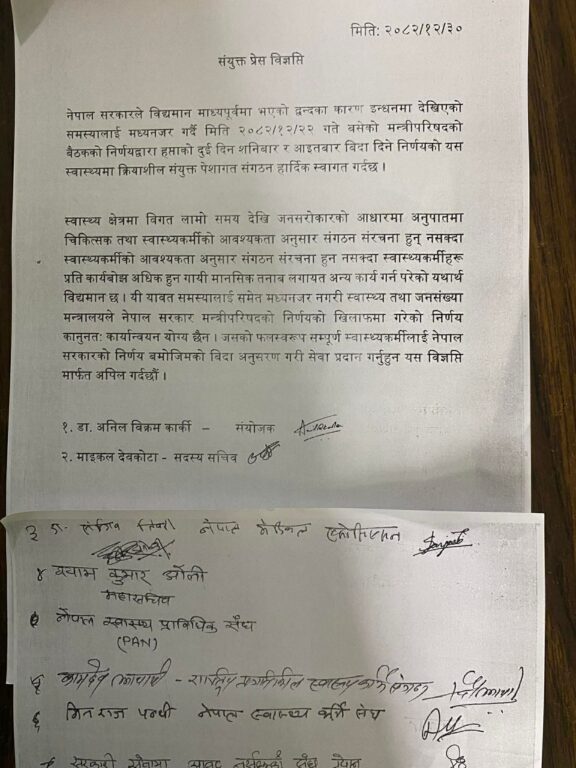 मिति: २०८२/१२/३०
संयुक्त प्रेस विज्ञप्ति
नेपाल सरकारले विद्यमान माध्यपूर्वमा भएको द्वन्दका कारण इन्धनमा देखिएको
समस्यालाई मध्यनजर गर्दै मिति २०८२/१२/२२ गते बसेको मन्त्रीपरिषदको
बैठकको निर्णयद्वारा हप्ताको दुई दिन शनिबार र आइतबार बिदा दिने निर्णयको यस
स्वास्थ्यमा क्रियाशील संयुक्त पेशागत संगठन हार्दिक स्वागत गर्दछ ।
स्वास्थ्य क्षेत्रमा विगत लामो समय देखि जनसरोकारको आधारमा अनुपातमा
चिकित्सक तथा स्वास्थ्यकर्मीको आवश्यकता अनुसार संगठन संरचना हुन् नसक्दा
स्वास्थ्यकर्मीको आवश्यकता अनुसार संगठन संरचना हुन नसक्दा स्वास्थ्यकर्मीहरू
प्रति कार्यबोझ अधिक हुन गायी मानसिक तनाब लगायत अन्य कार्य गर्न परेको यथार्थ
विद्यमान छ । यी यावत समस्यालाई समेत मध्यनजर नगरी स्वास्थ्य तथा जनसंख्या
मन्त्रालयले नेपाल सरकार मन्त्रीपरिषदको निर्णयको खिलाफमा गरेको निर्णय
कानुनत: कार्यान्वयन योग्य छैन । जसको फलस्वरूप सम्पूर्ण स्वास्थ्यकर्मीलाई नेपाल
सरकारको निर्णय बमोजिमको बिदा अनुसरण गरी सेवा प्रदान गर्नुहुन यस विज्ञप्ति
मार्फत अपिल गर्दछौं ।
१. डा. अनिल विक्रम कार्की – संयोजक
२. माइकल देवकोटा - सदस्य सचिव
३ डा. नेपाल मेडिकल एसोसिएसन
४ श्याम कुमार
महासचिव
नेपाल स्वास्थ्य प्राविधिक संघ
(PAN)
स्वास्थ्यकर्मी
६ मित राज पन्थी नेपाल स्वास्थ्य कर्मी संघ
सरकारी